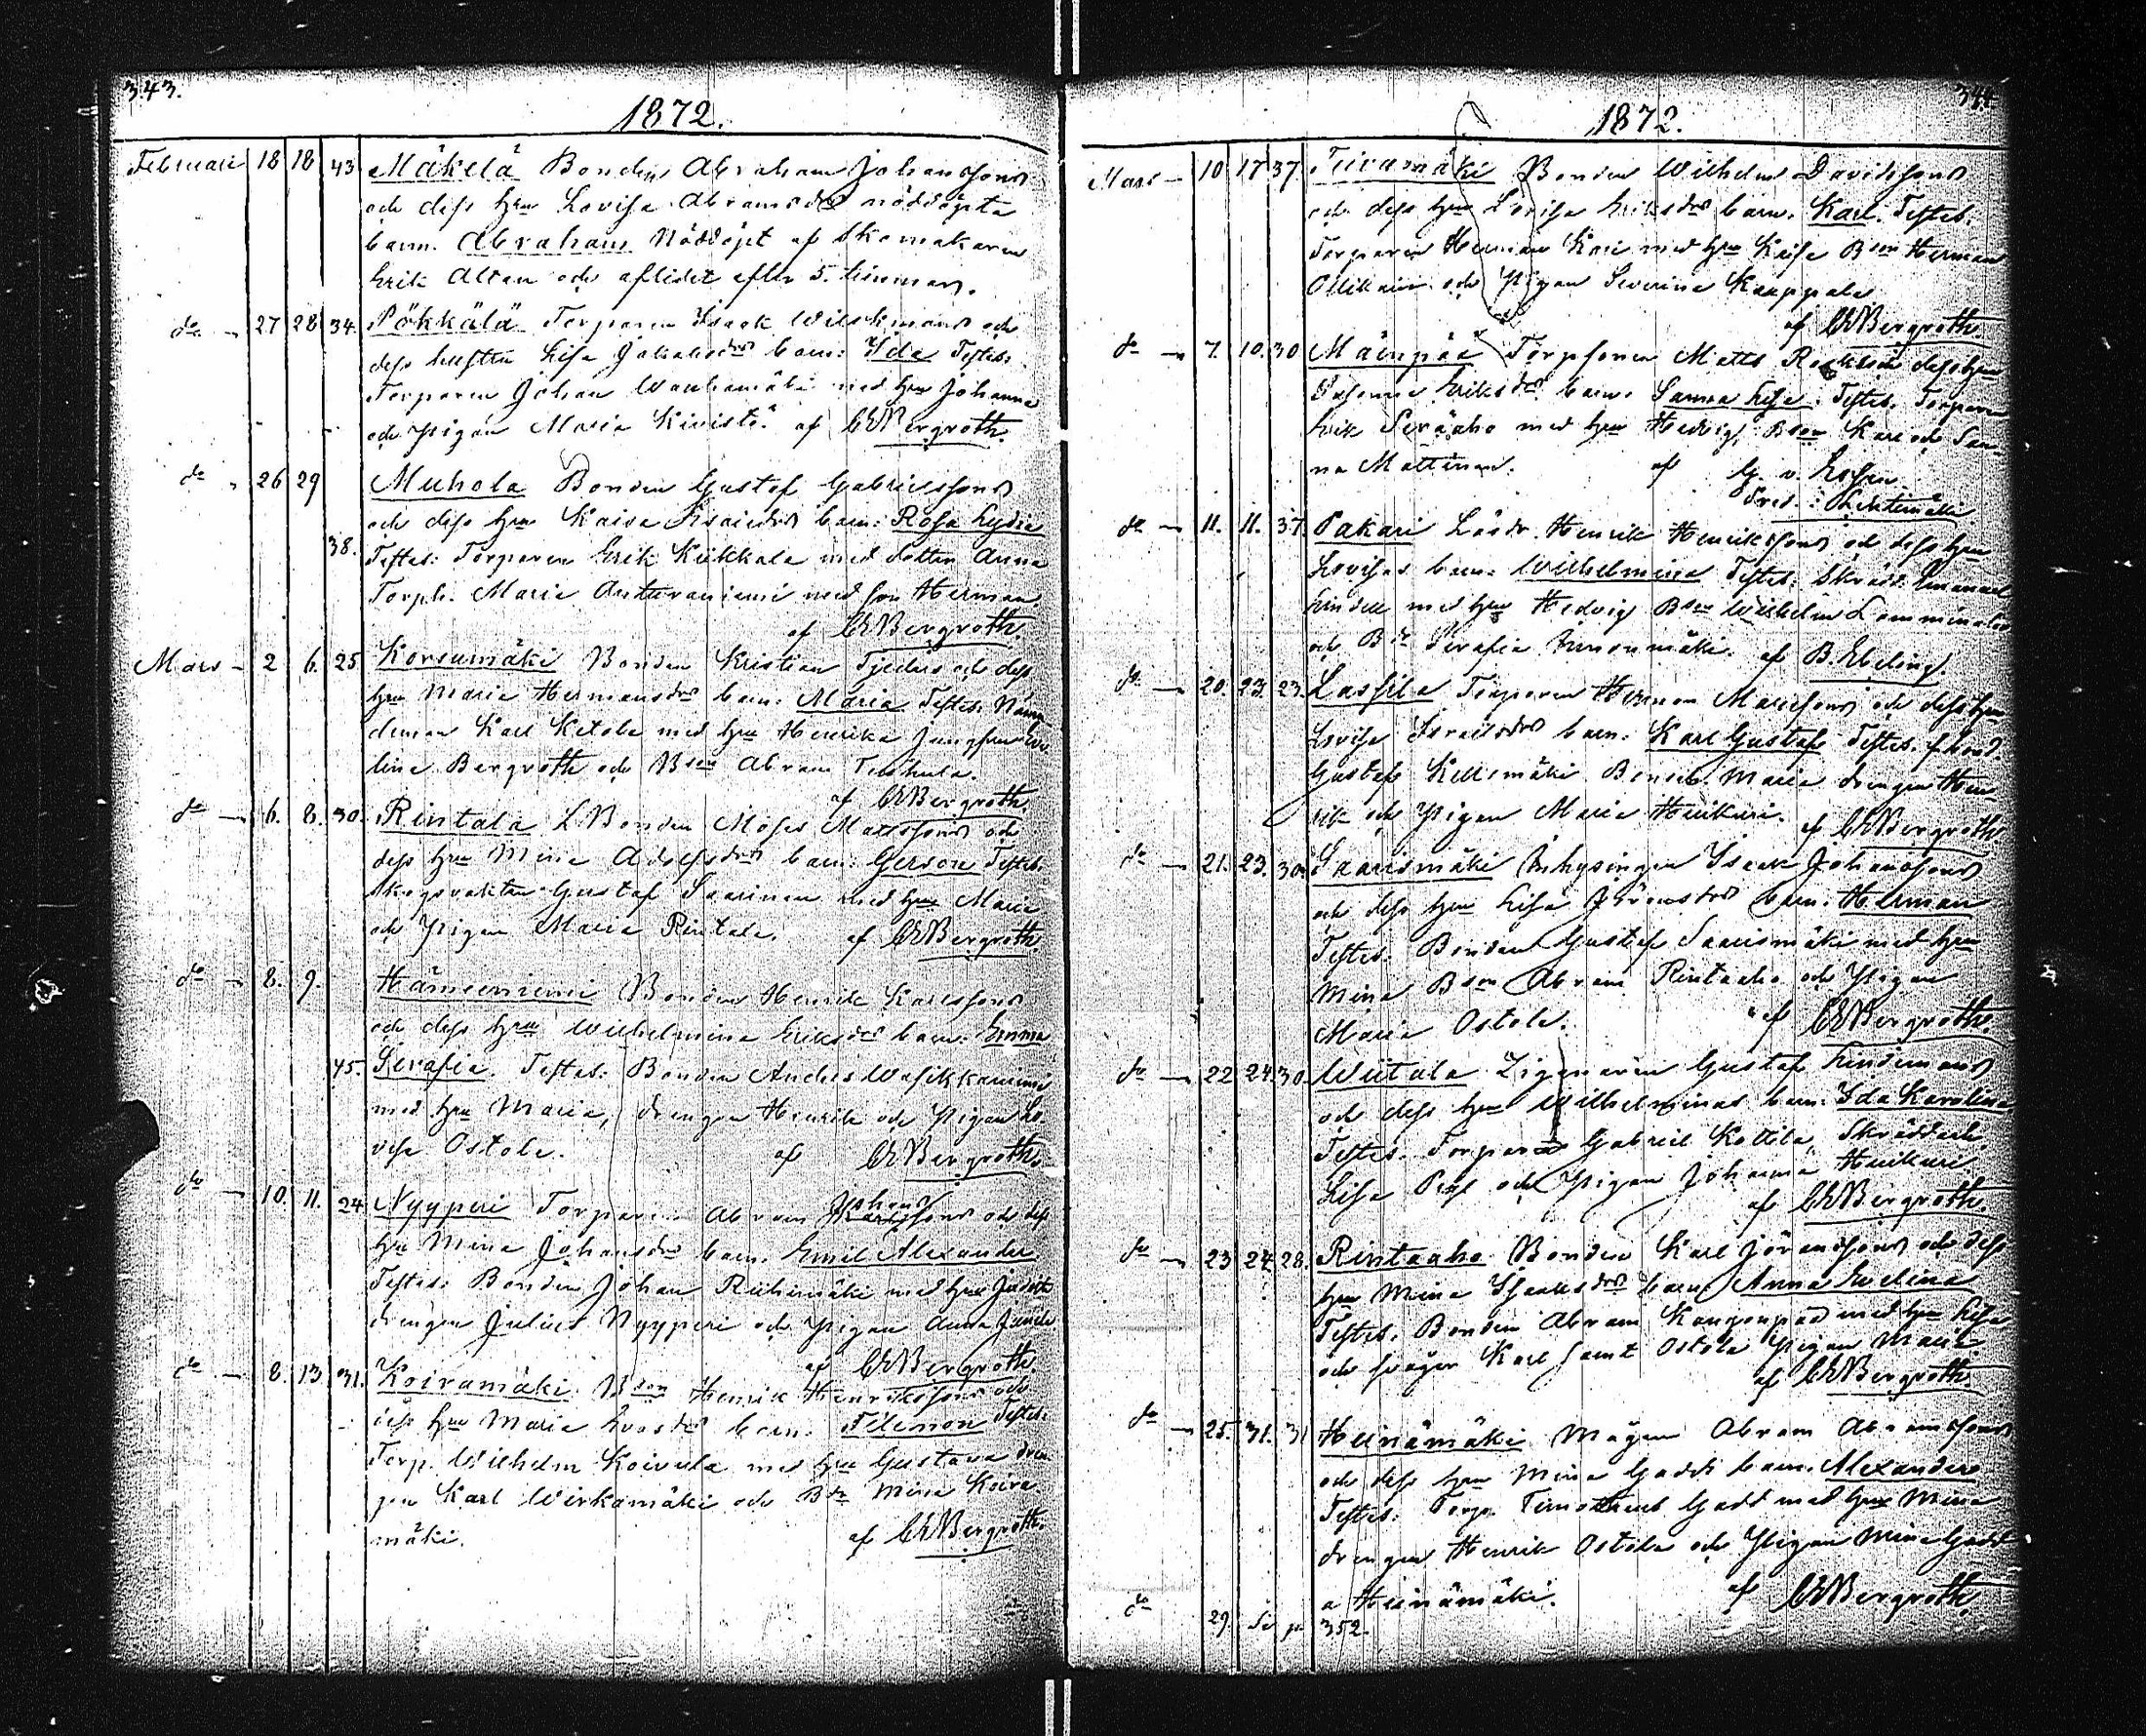 343.
1872.
Februarii 18 18 43 Mäkelä Bonden Abraham Johanssons
och dess hru Lovisa Abramsdrs nöddöpta
barn. Abraham Nöddöpt af Skomakaren
Erik Alten och aflidet efter 5. timmar.
do 27 28 34. Pökkälä Torparen Isaak Wilskmans och
dess hustru Lisa Jakobsdrs barn: Ida Testes:
Torparen Johan Wanhamäki med hru Johanna
och pigan Maria Kivistö. af CEBergroth.
do 26 29 Muhola Bonden Gustaf Gabrielssons
och dess hru Kaisa Isaksdrs barn: Rosa Lydia
38. Testes: Torparen Erik Kukkala med dottern Anna
Torph. Maria Anttoraniemi med son Herman.
af CEBergroth.
Mars - 2 6. 25 Korsumäki Bonden Kristian Tjeders och dess
hru Maria Hermansdrs barn: Maria Testes. Näm-
deman Karl Ketola med hru Henrika Jungfru
lina Bergroth och Bson Abram
af CEBergroth.
do 6. 8. 30. Rintala LBonden Moses Mattssons och
dess hru Mina Adolfsdrs barn: Gerson Testes.
Skogsvakten Gustaf Saarinen med hru Maria
och pigan Maria Rintala. af CEBergroth.
do 8. 9. Hämeenniemi Bonden Henrik Karlssons
och dess hru Wilhelmina Eriksdrs barn. Emma
45. Serafia. Testes: Bonden Anders
med hru Maria, drengen Henrik och pigan Lo-
visa Ostola. af CEBergroth.
do 10. 11. 24 Nyyperi Torparen Abram Johanssons och dess
hru Mina Johansdrs barn. Emil Alexander.
Testes: Bonden Johan Riihimäki med hru Judith
drengen Julius Nyyperi och pigan Anna
af CEBergroth.
do 8. 13 31. Koiramäki. Bson Henrik Henrikssons och
dess hru Maria barn. Filemon Testes:
Torp. Wilhelm Koivula med hru Gustava dren-
gen Karl Wirkamäki och Bdr Mina Koira-
mäki. af CEBergroth.
344
1872.
Mars - 10 17 37. Teiramäki Bonden Wilhelm Davidssons
och dess hru Lovisa Eriksdrs barn. Karl. Testes:
Torparen Herman Kari med hru Kaisa Bson Herman
Ollikain och pigan Severina Kauppala
af CEBergroth.
do 7. 10. 30 Mäenpää Torpsonen Matts dess hru
Eriksdrs barn. Sanna Lisa: Testes. Torparen
Erik Peräaho med hru Hedvig, Bson Karl och San-
na Mattinen. af G. v. Essen.
Pred. i Lehtimäki
do 11. 11. 37. Pakari Lösdr. Henrik Henrikssons och dess hru
Lovisas barn: Wilhelmina Testes: Skrädd. Emanuel
Lindell med hru Hedvig Bson Wilhelm
och Bdr Serafia af B. Ebeling.
do 20. 23. 23. Lassila Torparen Herman Mariessons och dess hru
Lovisa Israelsdrs barn. Karl Gustaf Testes.
Gustaf Kellomäki Maria drengen Hen-
rik och pigan Maria Huikuri. af CEBergroth.
do 21. 23. 30 Saarismäki Inhysingen Isaak Johanssons
och dess hru Lisa Jöransdrs barn. Herman
Testes. Bonden Gustaf Saarismäki med hru
Mina Bson Abram Rintaaho och pigan
Maria Ostola. af CEBergroth.
do 22 24 30 Wiitala Zigenaren Gustaf Lindemans
och dess hru Wilhelminas barn: Ida Karolina
Testes. Torparen Gabriel Kottila, Skräddareh.
Lisa och pigan Johanna Huikuri.
af CEBergroth.
do 23 24 28. Rintaaho Bonden Karl Jöranssons och dess
hru Mina Isaaksdrs barn. Anna Evelina
Testes. Bonden Abram Kangonpää med hru Lisa
och svåger Karl samt Ostola pigan Maria
af CEBergroth.
do 25. 31. 31 Heinämäki Mågen Abram Abramssons
och dess hru Mina Gadds barn. Alexander
Testes: Torp. Timotheus Gadd med hru Mina
drengen Henrik Ostola och pigan Mina Gadd
a Heinämäki. af CEBergroth.
do 29. Se p 352.